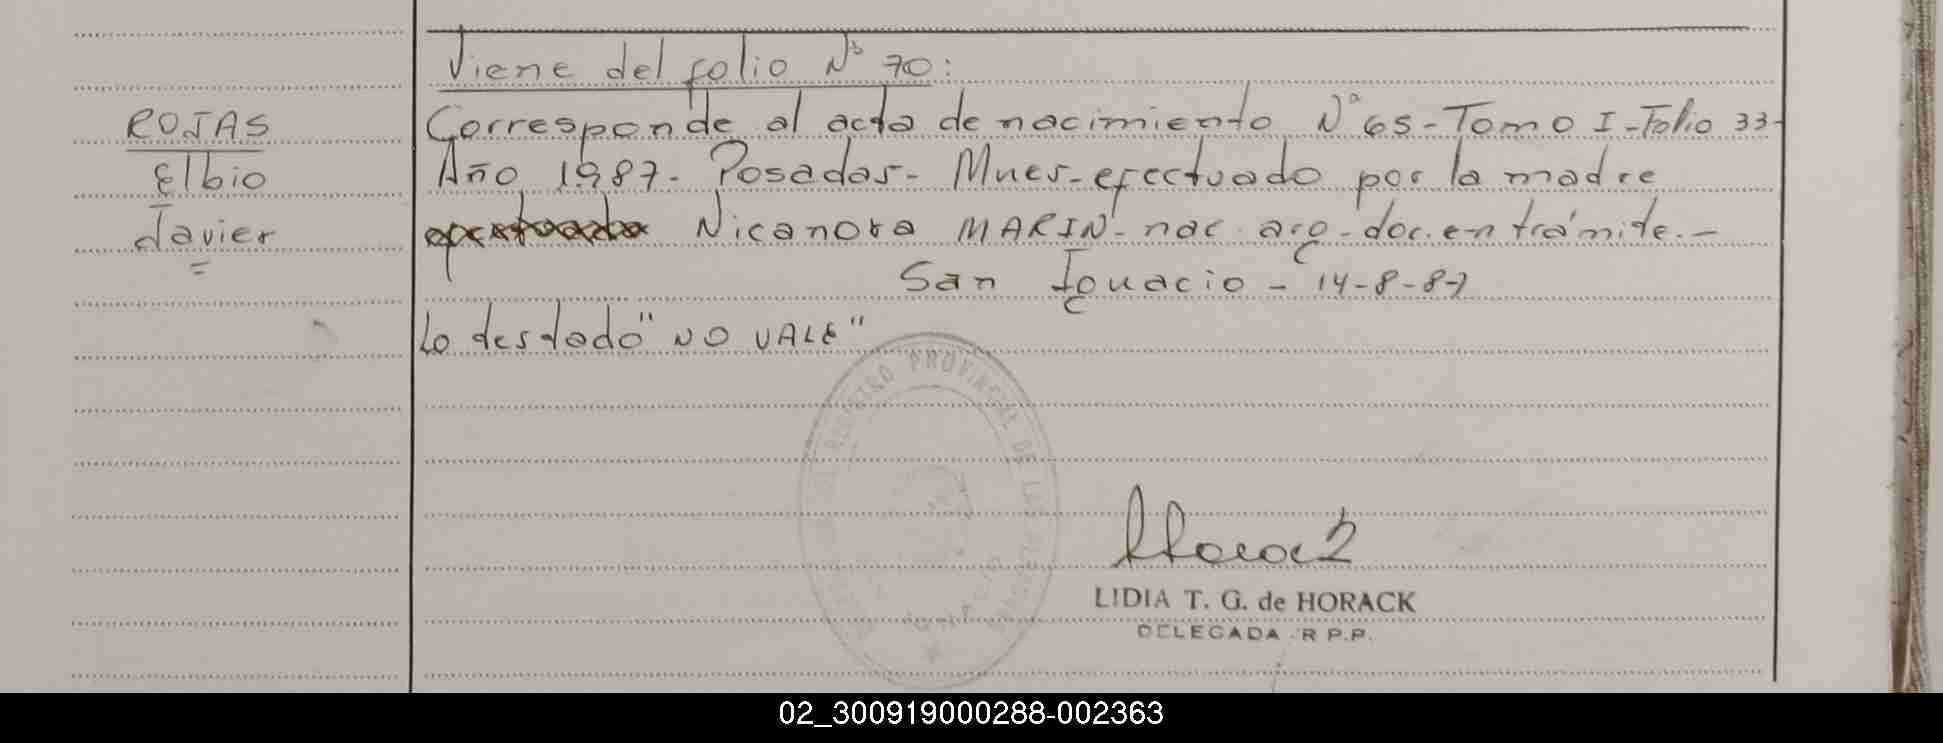 Viene del folio Nº 70:
ROJAS
Elbio
Javier
Corresponde al acta de nacimiento Nº 65-Tomo I-Folio 33-
Año 1987- Posadas- Mnes-efectuado por la madre
Nicanora MARIN- nac. arg-doc.en trámite.-
San Ignacio - 14-8-87
Lo testado "NO VALE"
REGISTRO PROVINCIAL DE LAS PERSONAS
IGNACIO
LIDIA T. G. de HORACK
DELEGADA R.P.P.
02_300919000288-002363